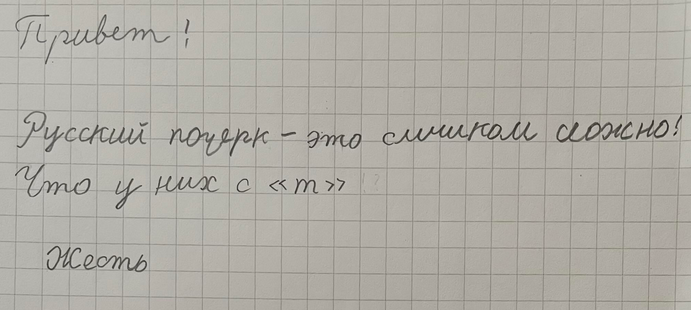 Привет!
Русский почерк - это слишком сложно!
Что у них с «т» !?
Жесть